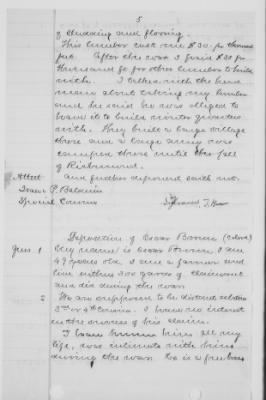 5
of cleaning and flooring.
This lumber cost me $30. pr thousand
feet. After the war I paid $30 pr
thousand ft for other lumber to build
with. I talked with the head
man about taking my lumber
and he said he was obliged to
have it to build winter quarters
with. They built a large village
there and a large army was
camped there until the fall
of Richmond.
And further deponent saith not.
Attest
Isaac P. Baldwin
Special Comm
Sylvanus T.
Deposition of
Jess 1 My name is I am
49 years old. I am a farmer and
live within 300 yards of claimant
and did during the war.
2 We are supposed to be distant relation
3rd or 4th Cousin. I have no interest
in the success of his claim.
I have known him all my
life, was intimate with him
during the war. He is a free born